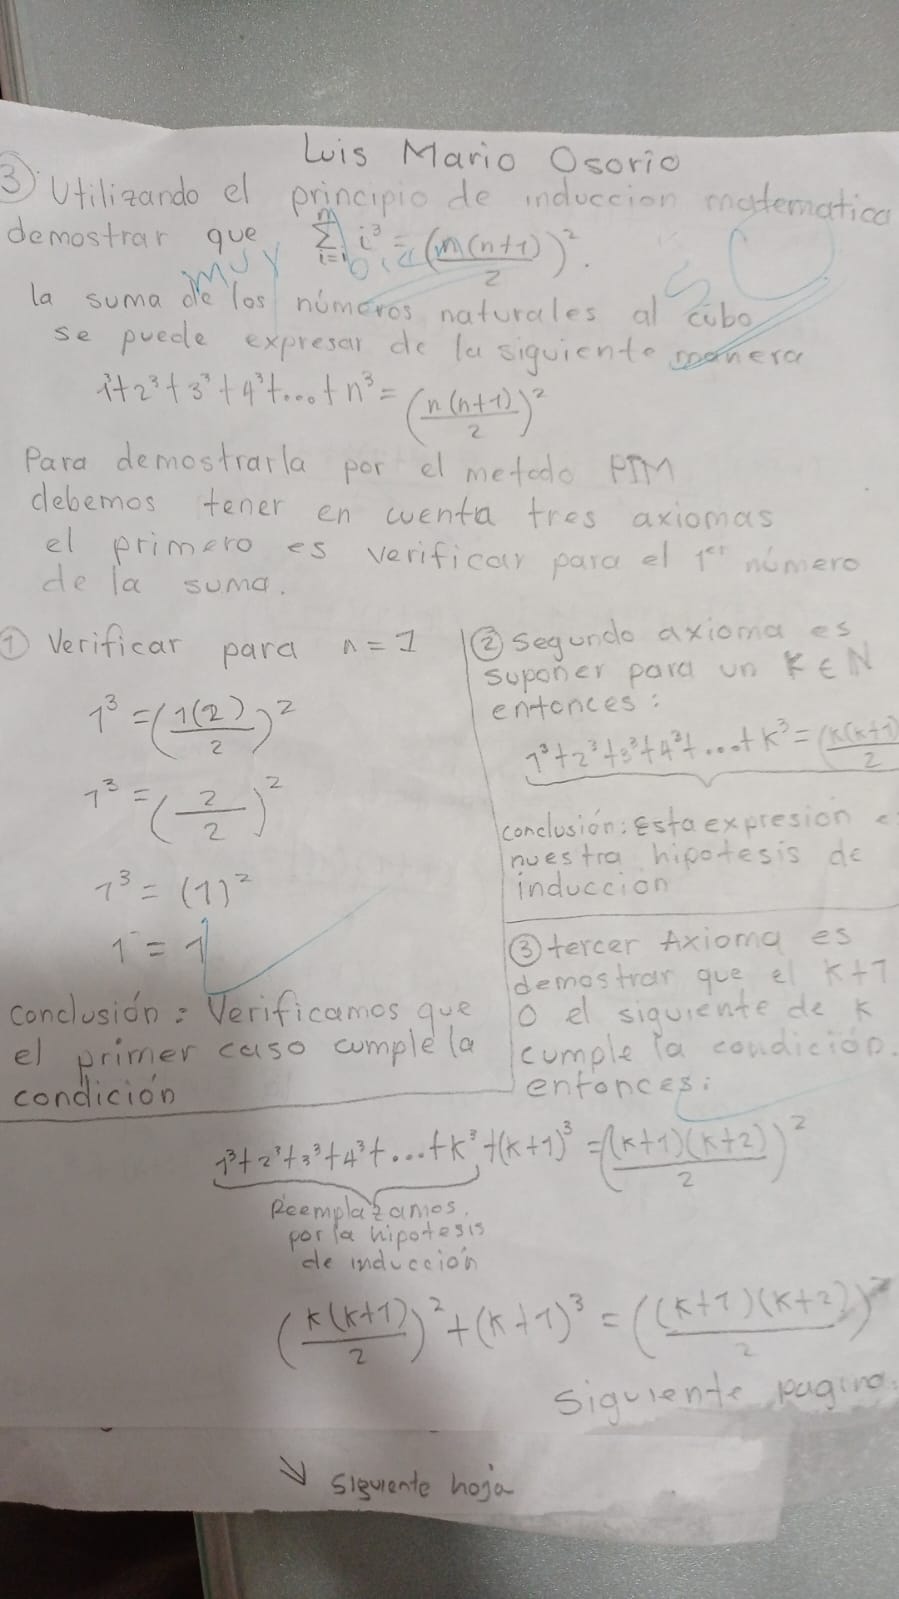 Luis Mario Osorio
③ Utilizando el principio de induccion matematica
demostrar que $\sum_{i=1}^{n} i^3 = \left(\frac{n(n+1)}{2}\right)^2$.
muy bien
la suma de los números naturales al cubo
se puede expresar de la siguiente manera
1³+2³+3³+4³+...+n³ = (n(n+1)/2)²
Para demostrarla por el metodo PIM
debemos tener en cuenta tres axiomas
el primero es verificar para el 1er número
de la suma.
① Verificar para n=1
1³ = (1(2)/2)²
1³ = (2/2)²
1³ = (1)²
1 = 1
Conclusión: Verificamos que
el primer caso cumple la
condición
② Segundo axioma es
suponer para un K∈N
entonces:
1³+2³+3³+4³+...+K³ = (K(K+1)/2
conclusión: Esta expresion e
nuestra hipotesis de
induccion
③ tercer Axioma es
demostrar que el K+1
O el siguiente de K
cumple la condición.
entonces:
1³+2³+3³+4³+...+K³+(K+1)³ = ((K+1)(K+2)/2)²
Reemplazamos
por la hipotesis
de inducción
(K(K+1)/2)²+(K+1)³ = ((K+1)(K+2)/2)²
Siguiente pagina
↓ Siguiente hoja